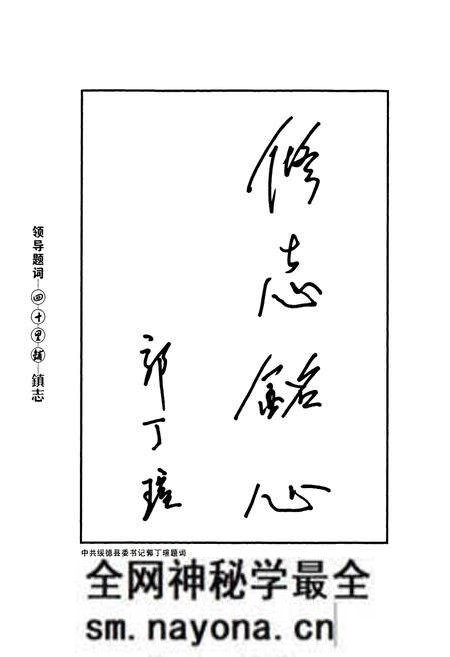 修志銘心
郭丁瑄
领导题词—四十里铺—鎮志
中共绥德县委书记郭丁瑄题词
全网神秘学最全
sm.nayona.cn